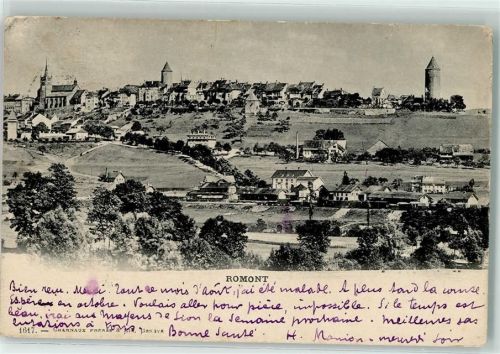 ROMONT
Bien reçu. Merci. Tout ce mois d'Août, j'ai été malade. A plus tard la course.
Espère en octobre. Voulais aller pour pierre, impossible. Si le temps est
beau, irai aux mayens de Sion la semaine prochaine. meilleures sa-
lutations à tous. Bonne Santé. H.
1617. — CHARNAUX FRÈRES & Cie, GENÈVE